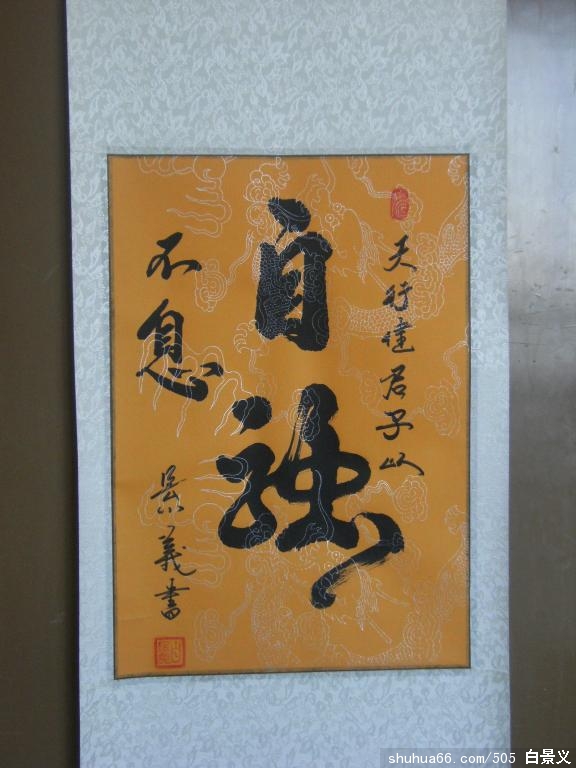 天行健君子以
自強
不息
景義書
shuhua66.com/505 白景义